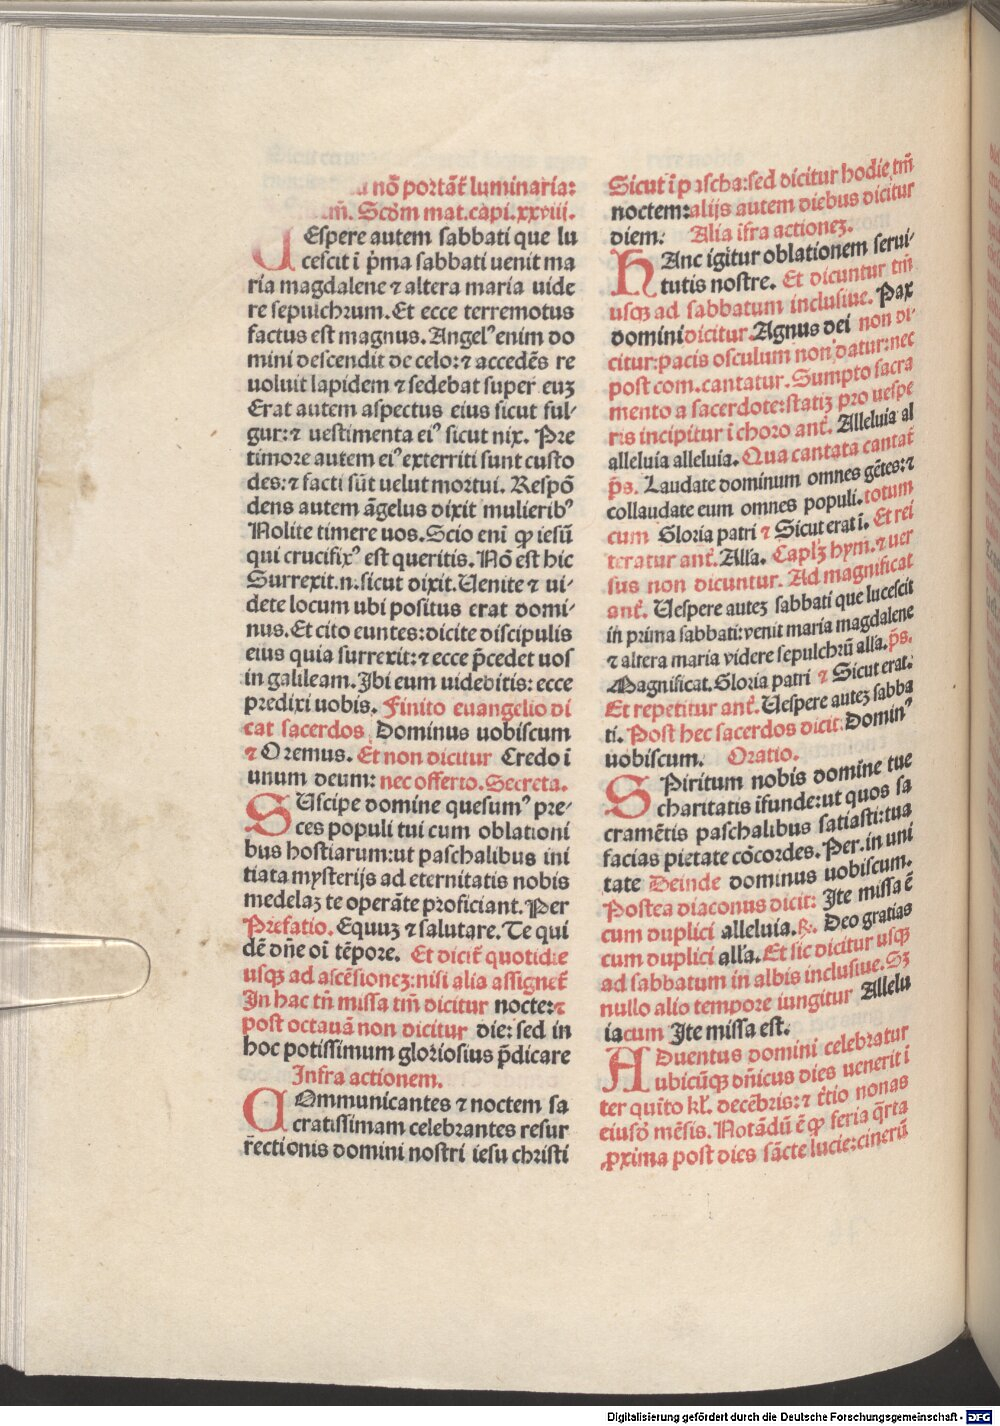 nō portāt̄ luminaria:
Scōm mat. capi. xxviii.
UEspere autem sabbati que lu
cescit ī p̄ma sabbati uenit ma
ria magdalene ⁊ altera maria uide
re sepulchrum. Et ecce terremotus
factus est magnus. Angelꝰ enim do
mini descendit de celo: ⁊ accedēs re
uoluit lapidem ⁊ sedebat super euꝫ
Erat autem aspectus eius sicut ful-
gur: ⁊ uestimenta eiꝰ sicut nix. Pre
timore autem eiꝰ exterriti sunt custo
des: ⁊ facti sūt uelut mortui. Respō
dens autem āgelus dixit mulieribꝰ
Nolite timere uos. Scio eni ꝙ iesū
qui crucifixꝰ est queritis. Nō est hic
Surrexit .n. sicut dixit. Uenite ⁊ ui-
dete locum ubi positus erat domi-
nus. Et cito euntes: dicite discipulis
eius quia surrexit: ⁊ ecce p̄cedet uos
in galileam. Ibi eum uidebitis: ecce
predixi uobis. Finito euangelio di
cat sacerdos Dominus uobiscum
⁊ Oremus. Et non dicitur Credo ī
unum deum: nec offerto. Secreta.
SUscipe domine quesumꝰ pre-
ces populi tui cum oblationi
bus hostiarum: ut paschalibus ini
tiata mysterijs ad eternitatis nobis
medelaꝫ te operāte proficiant. Per
Prefatio. Equuꝫ ⁊ salutare. Te qui
dē dn̄e oī tēpore. Et dicit̄ quotidie
usqꝫ ad ascēsionez: nisi alia assignet̄
In hac tn̄ missa tm̄ dicitur nocte: ⁊
post octauā non dicitur die: sed in
hoc potissimum gloriosius p̄dicare
Infra actionem.
COmmunicantes ⁊ noctem sa
cratissimam celebrantes resur
r̄ectionis domini nostri iesu christi
Sicut ī pascha: sed dicitur hodie tm̄
noctem: alijs autem diebus dicitur
diem: Alia īfra actionez.
HAnc igitur oblationem serui-
tutis nostre. Et dicuntur tm̄
usqꝫ ad sabbatum inclusiue. Pax
domini dicitur. Agnus dei non di-
citur: pacis osculum non datur: nec
post com. cantatur. Sumpto sacra
mento a sacerdote: statiꝫ pro uespe
ris incipitur ī choro ant̄. Alleluia al
alleluia alleluia. Qua cantata cantat̄
p̄s. Laudate dominum omnes gētes: ⁊
collaudate eum omnes populi. totum
cum Gloria patri ⁊ Sicut erat ī. Et rei
teratur ant̄. Alla. Caplꝫ hym. ⁊ uer
sus non dicuntur. Ad magnificat
ant̄. Uespere autez sabbati que lucescit
in prima sabbati: venit maria magdalene
⁊ altera maria videre sepulchrū alla. p̄s.
Magnificat. Gloria patri ⁊ Sicut erat.
Et repetitur ant̄. Uespere autez sabba
ti. Post hec sacerdos dicit: Dominꝰ
uobiscum. Oratio.
SPiritum nobis domine tue
charitatis īfunde: ut quos sa
cramētis paschalibus satiasti: tua
facias pietate cōcordes. Per. in uni
tate Deinde dominus uobiscum.
Postea diaconus dicit: Ite missa ē
cum duplici alleluia. ℟. Deo gratias
cum duplici alla. Et sic dicitur usqꝫ
ad sabbatum in albis inclusiue. Sꝫ
nullo alio tempore iungitur Allelu
ia cum Ite missa est.
ADuentus domini celebratur
ubicūqꝫ dn̄icus dies uenerit ī
ter quīto kl̄. decēbris: ⁊ t̄tio nonas
eiusdē mēsis. Notādū ē ꝙ feria q̄rta
ꝓxima post dies sācte lucie: cinerū
Digitalisierung gefördert durch die Deutsche Forschungsgemeinschaft - DFG